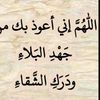 اللَّهُمَّ إني أعوذ بك من
جَهْدِ البَلَاءِ
ودَرَكِ الشَّقاءِ